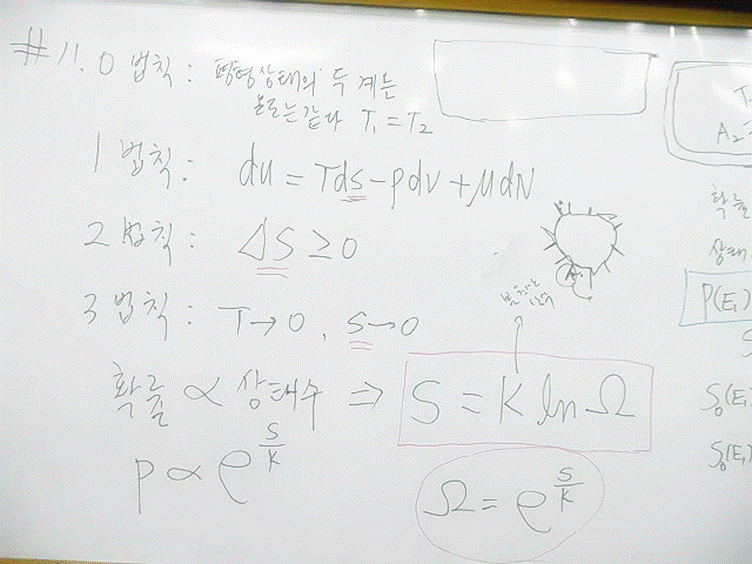 #11. 0 법칙 : 평형상태의 두 계는
온도는 같다 T₁ = T₂
1 법칙 : du = Tds - pdv + μdN
2 법칙 : ΔS ≥ 0
3 법칙 : T → 0 , s → 0
확률 ∝ 상태수 ⇒ S = K ln Ω
p ∝ e^(S/K)
Ω = e^(S/K)
A₂
확률
상태
P(E₁)
S₀(E₁)
S₀(E₁)